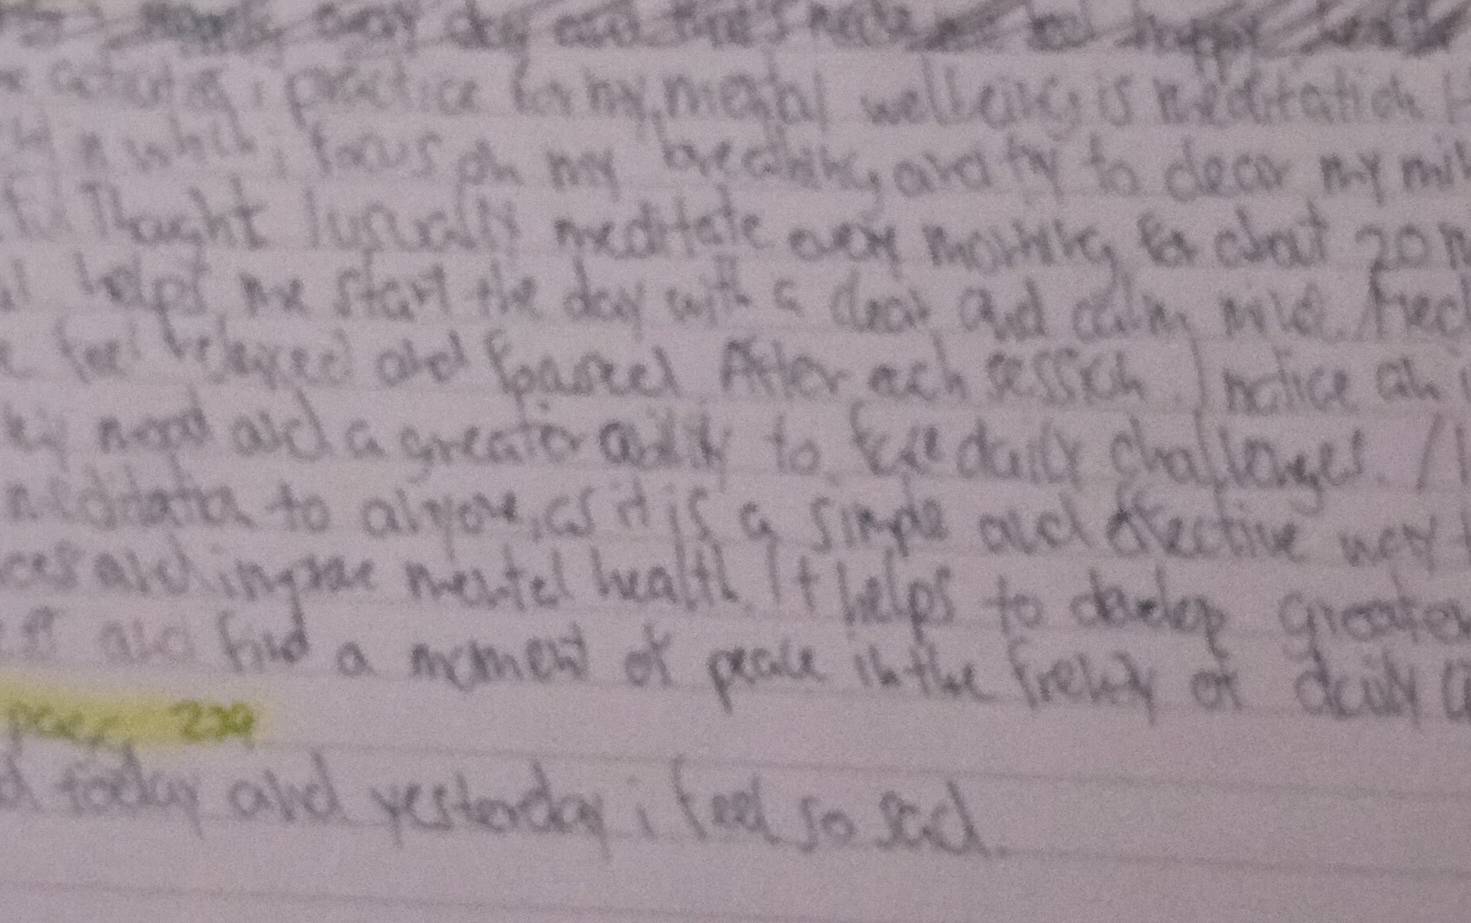 every day and that's made me feel happy
activities i practice for my mental wellbeing is meditation
in which i focus on my breathing and try to clear my
Thought I usually meditate every morning for about 20
helps me start the day with a clear and calm mind.
feel relaxed and focused After each session I notice an
mood and a greater ability to face daily challenges. I
meditation to anyone, as it is a simple and effective way
and improve mental health. It helps to develop greater
and find a moment of peace in the frenzy of daily
page 229
today and yesterday i feel so sad.